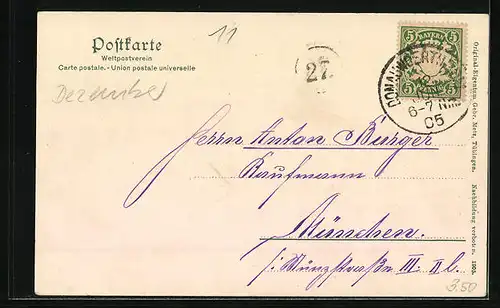 Postkarte
Weltpostverein
Carte postale.- Union postale universelle
Dezember
11
27.
5 BAYERN 5
5 PFENNIG 5
DONAUWOERTH
6-7 NM.
05
Herrn Anton Burger
Kaufmann
München.
Münzstraße III. II l.
Original-Eigentum Gebr. Metz, Tübingen. Nachbildung verboten. 1905.
3.50